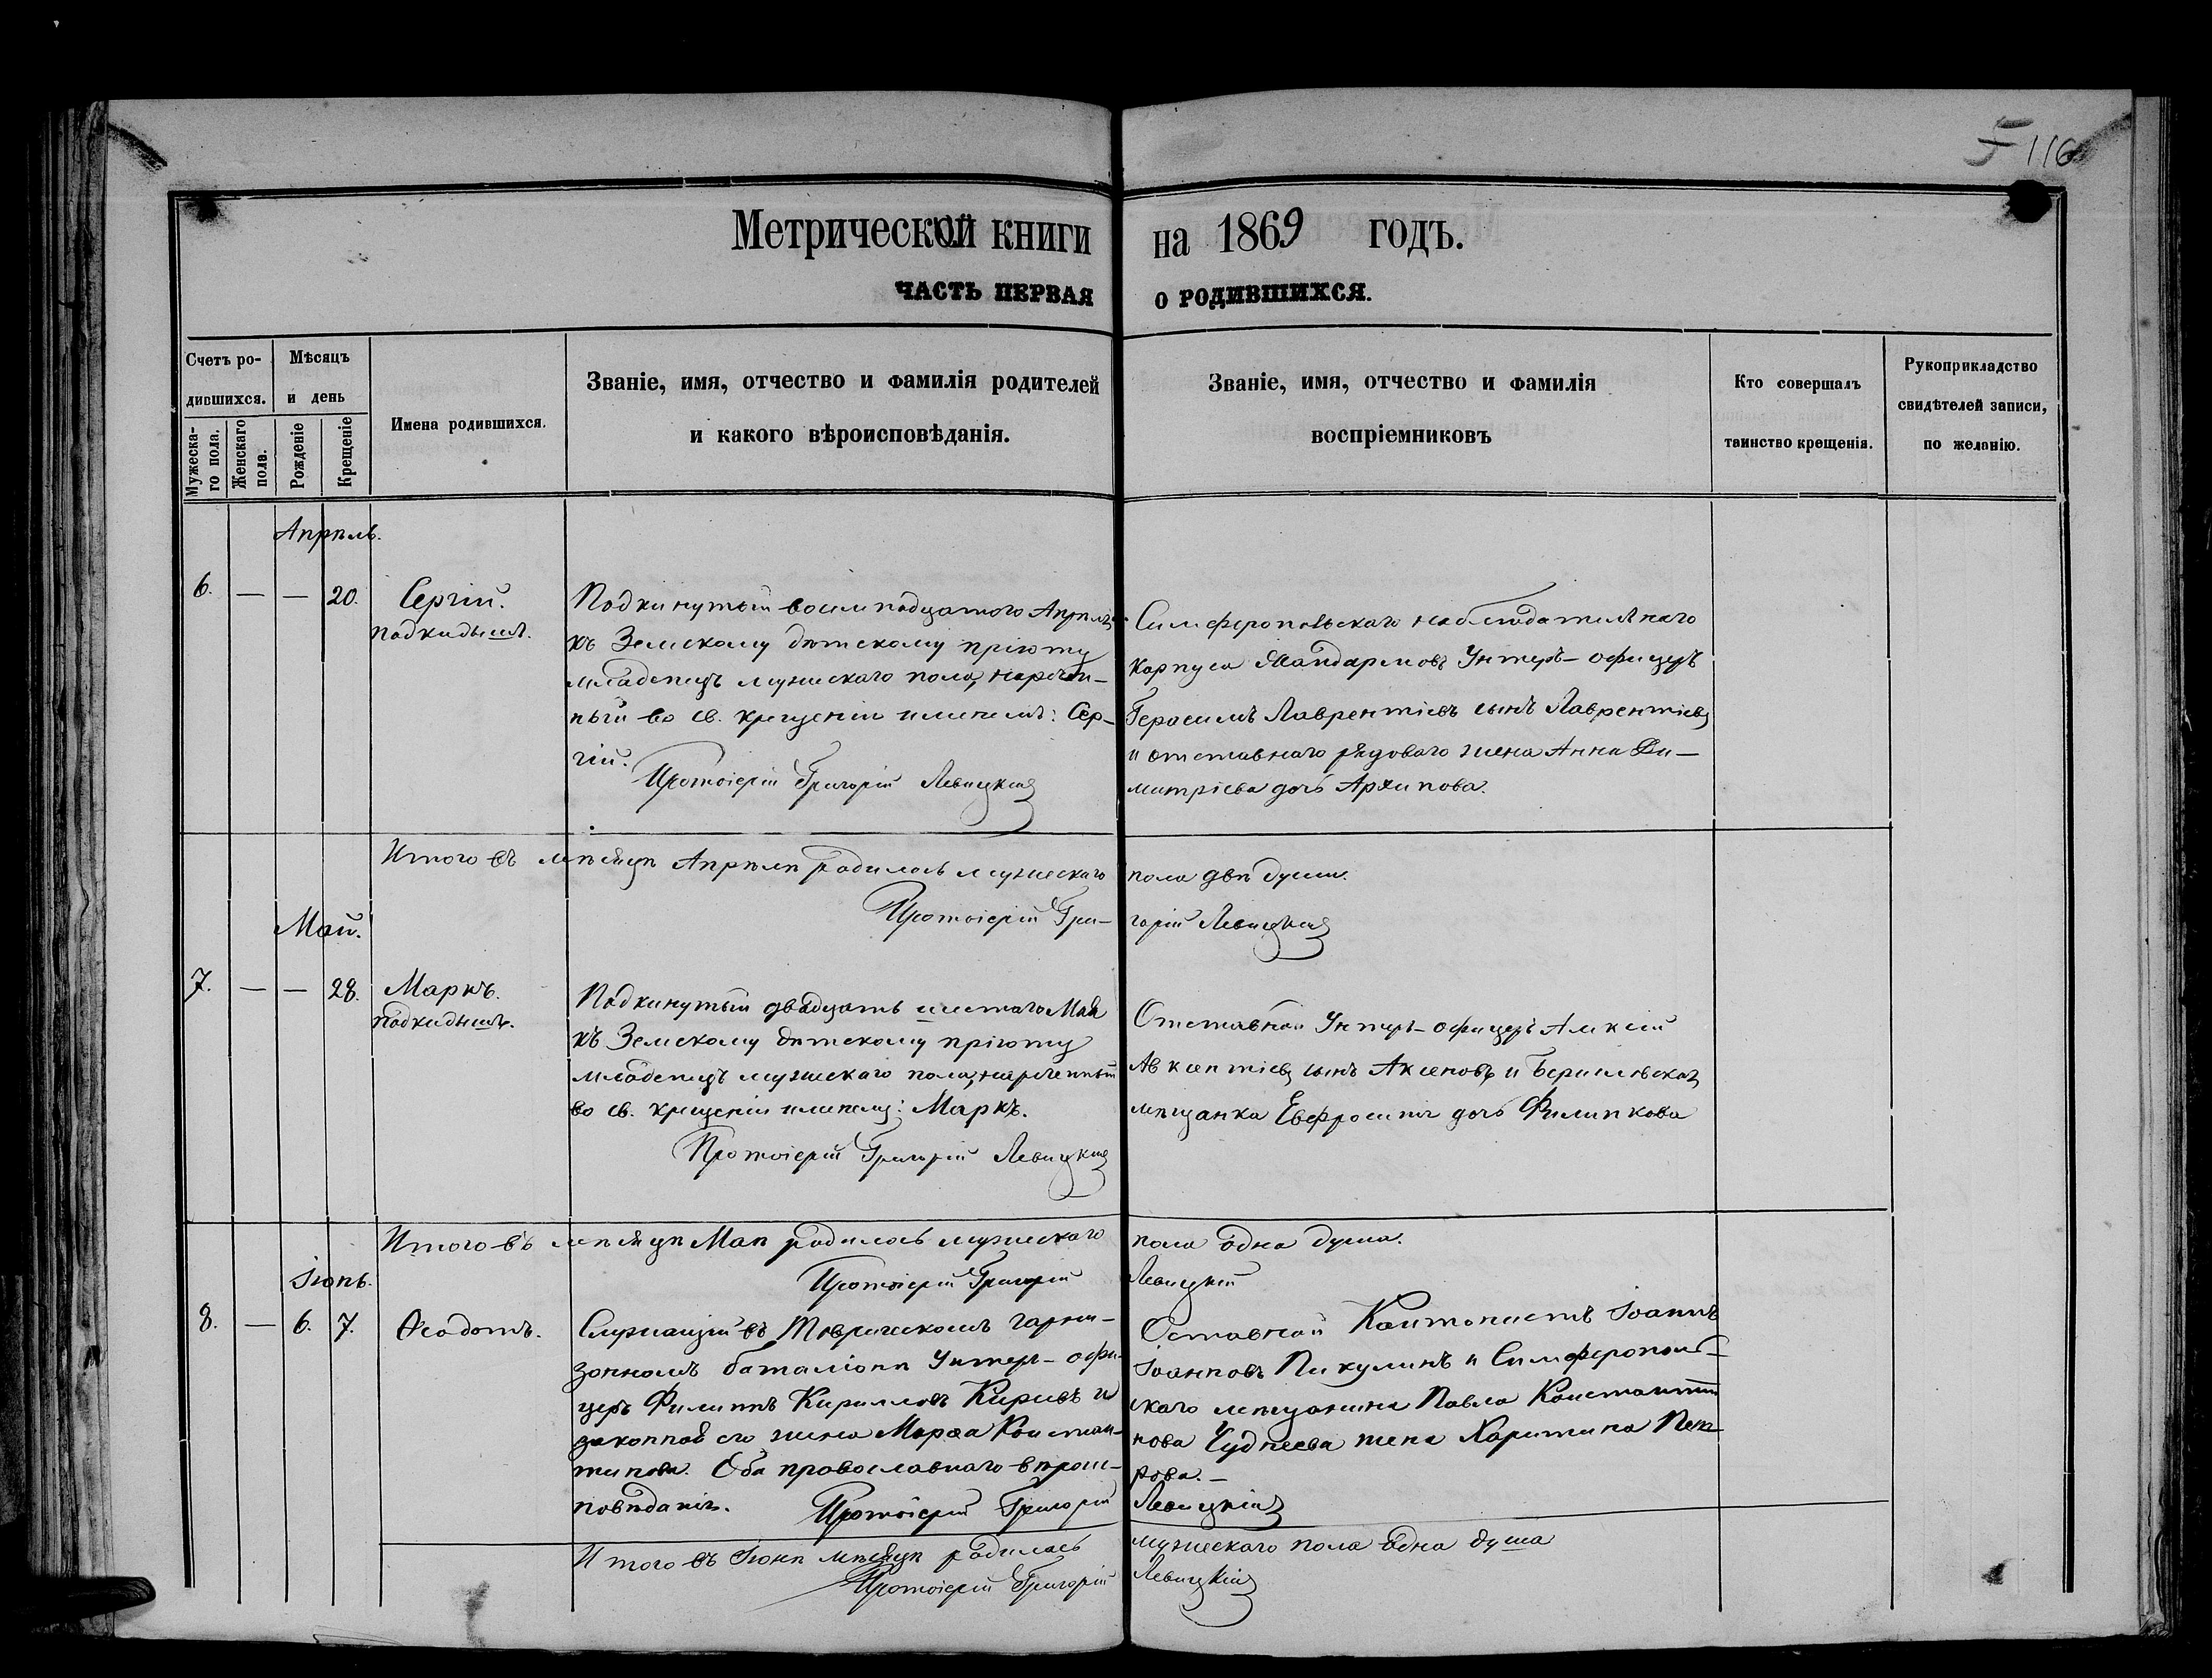 116
Метрической книги на 1869 годъ.
ЧАСТЬ ПЕРВАЯ О РОДИВШИХСЯ.
Счетъ ро-
дившихся.
Мужеска-
го пола.
Женскаго
пола.
Мѣсяцъ
и день
Рожденіе
Крещеніе
Имена родившихся.
Званіе, имя, отчество и фамилія родителей
и какого вѣроисповѣданія.
Званіе, имя, отчество и фамилія
воспріемниковъ
Кто совершалъ
таинство крещенія.
Рукоприкладство
свидѣтелей записи,
по желанію.
Апрѣль.
6. — — 20.
Сергій.
подкидышъ.
Подкинутый восемнадцатого Апрѣля
къ Земскому дѣтскому пріюту
младенецъ мужескаго пола, нарѣчен-
ный во св. крещеніи именемъ: Сер-
гій.
Протоіерей Григорій Левицкій
Симферопольскаго наблюдательнаго
корпуса Жандармовъ Унтеръ-офицеръ
Герасимъ Лаврентіевъ сынъ Лаврентіевъ
и отставнаго рядоваго жена Анна Ди-
митріева дочь Архипова.
Итого въ мѣсяцѣ Апрѣлѣ родилось мужескаго пола двѣ души.
Протоіерей Гри- горій Левицкій
Май.
7. — — 28.
Маркъ.
подкидышъ.
Подкинутый двадцать шестаго Мая
къ Земскому дѣтскому пріюту
младенецъ мужескаго пола, нареченный
во св. крещеніи именемъ: Маркъ.
Протоіерей Григорій Левицкій
Отставной Унтеръ-офицеръ Алексій
Авксентіевъ сынъ Аксеновъ и
мѣщанка Евфросинія дочь Филипкова
Итого въ мѣсяцѣ Маѣ родилось мужескаго пола одна душа.
Протоіерей Григорій Левицкій
Іюнь.
8. — 6. 7.
Ѳеодотъ.
Служащій въ Таврическомъ гарни-
зонномъ баталіонѣ Унтеръ-офи-
церъ Филиппъ Кирилловъ и
законная его жена Марѳа Констан-
тинова. Оба православнаго вѣроис-
повѣданія. Протоіерей Григорій
Левицкій
Оставной Кантонистъ Іоаннъ
Іоанновъ Пикулинъ и Симферополь-
скаго мѣщанина Павла Константи
нова жена Харитина Пет
рова.—
Итого въ Іюнѣ мѣсяцѣ родилось мужескаго пола одна душа
Протоіерей Григорій Левицкій